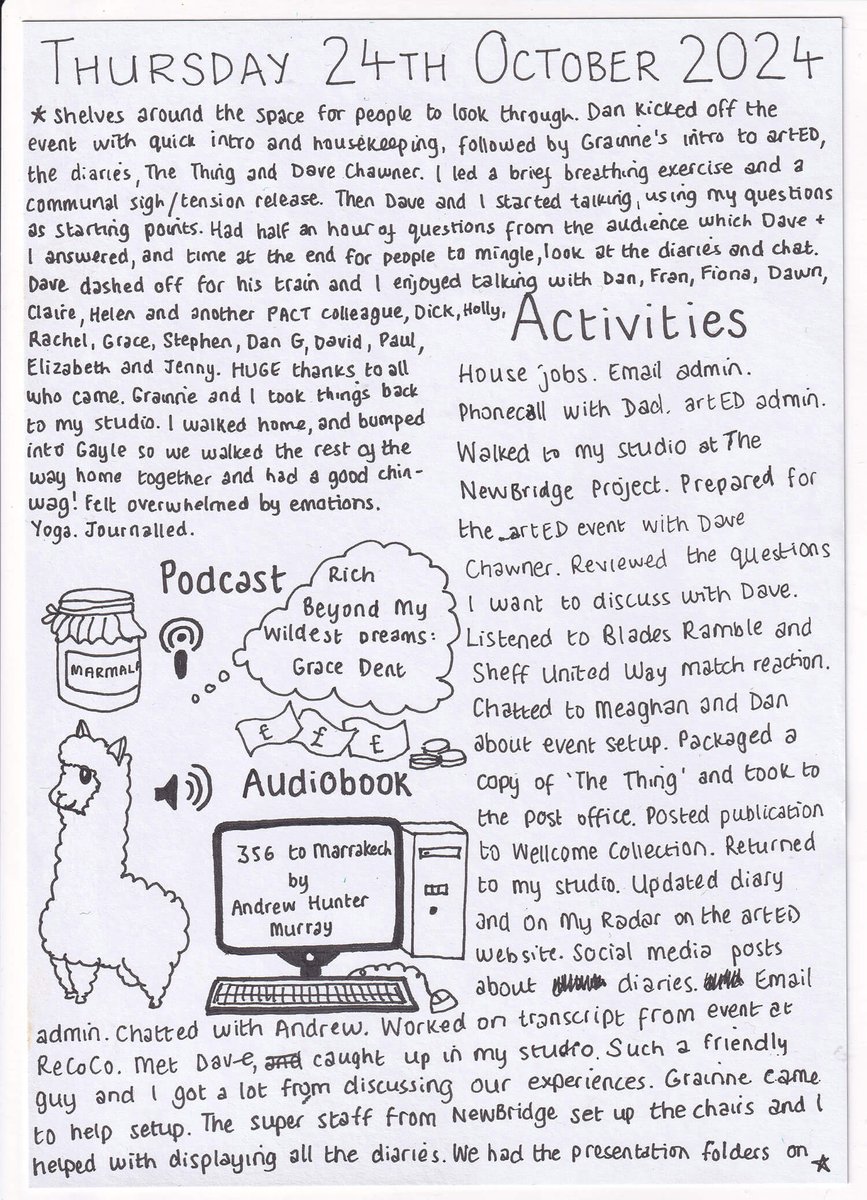 THURSDAY 24TH OCTOBER 2024
* shelves around the space for people to look through. Dan kicked off the
event with quick intro and housekeeping, followed by Grainne's intro to artED,
the diaries, The Thing and Dave Chawner. I led a brief breathing exercise and a
communal sigh/tension release. Then Dave and I started talking, using my questions
as starting points. Had half an hour of questions from the audience which Dave +
I answered, and time at the end for people to mingle, look at the diaries and chat.
Dave dashed off for his train and I enjoyed talking with Dan, Fran, Fiona, Dawn,
Claire, Helen and another PACT colleague, Dick, Holly,
Rachel, Grace, Stephen, Dan G, David, Paul,
Elizabeth and Jenny. HUGE thanks to all
who came. Grainne and I took things back
to my studio. I walked home, and bumped
into Gayle so we walked the rest of the
way home together and had a good chin-
wag! Felt overwhelmed by emotions.
Yoga. Journalled.
Activities
House jobs. Email admin.
Phonecall with Dad. artED admin.
Walked to my studio at The
NewBridge Project. Prepared for
the artED event with Dave
Chawner. Reviewed the questions
I want to discuss with Dave.
Listened to Blades Ramble and
Sheff United Way match reaction.
Chatted to Meaghan and Dan
about event setup. Packaged a
copy of 'The Thing' and took to
the post office. Posted publication
to Wellcome Collection. Returned
to my studio. Updated diary
and On My Radar on the artED
website. Social media posts
about diaries. Email
admin. Chatted with Andrew. Worked on transcript from event at
ReCoCo. Met Dave, and caught up in my studio. Such a friendly
guy and I got a lot from discussing our experiences. Grainne came
to help setup. The super staff from NewBridge set up the chairs and I
helped with displaying all the diaries. We had the presentation folders on *
Podcast
Rich
Beyond My
Wildest Dreams:
Grace Dent
MARMALA
£ £ £
Audiobook
356 to Marrakech
by
Andrew Hunter
Murray